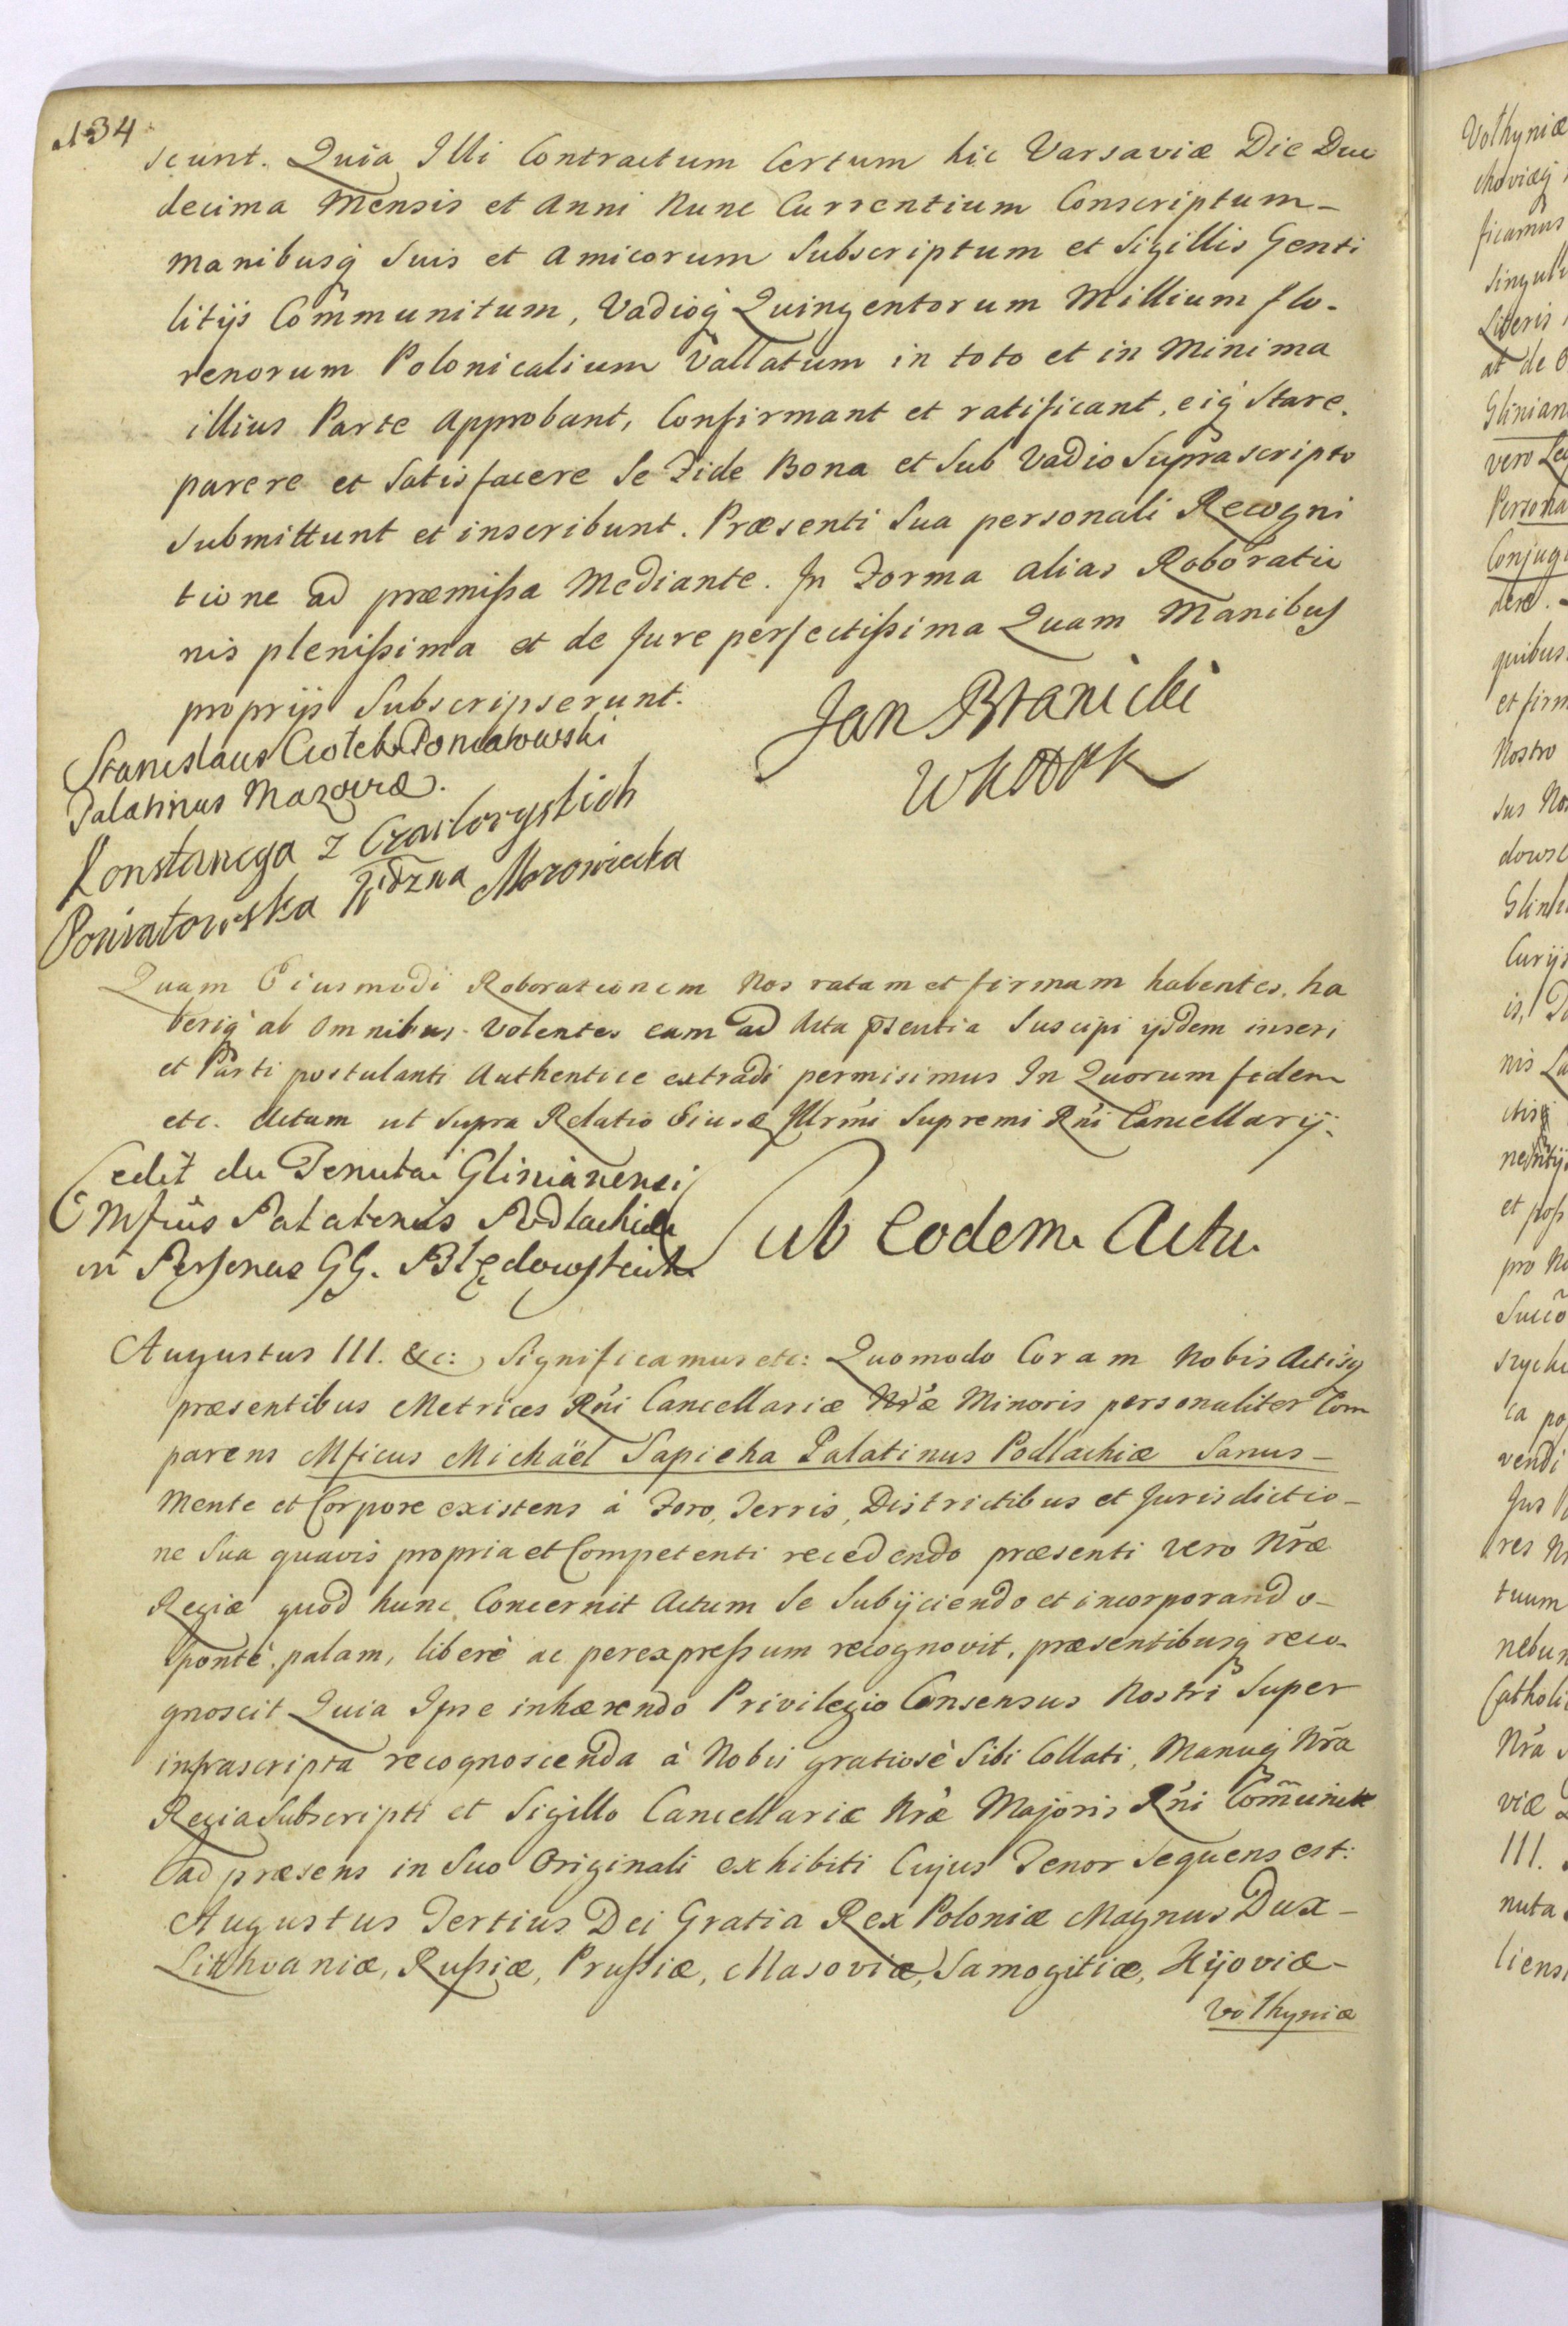 134
scunt. Quia Illi Contractum Certum hic Varsaviæ Die Duo
decima Mensis et Anni Nunc Currentium Conscriptum-
manibusq́ Suis et Amicorum Subscriptum et Sigillis Genti
litijs Com̃munitum, Vadioq́ Quingentorum Millium flo-
renorum Polonicalium Vallatum in toto et in Minima
illius Parte Approbant, Confirmant et ratificant, eiq́ Stare,
parere et Satisfacere Se Fide Bona et Sub Vadio Supra scripto
Submittunt et inscribunt. Præsenti Sua personali Recogni
tione ad præmißa Mediante. In Forma alias Roboratio
nis plenißima et de Jure perfectißima Quam Manibus
proprijs Subscripserunt.
Jan Branicki
WKOOHK
Stanislaus Ciolek Poniatowski
Palatinus Mazoviæ.
Konstancya z Czartoryskich
Poniatowska Mazowiecka
Quam Eiusmodi Roborationem Nos ratam et firmam habentes, ha
beriq́ ab Omnibus Volentes eam ad Acta p̃sentia Suscipi ijsdem inseri
et Parti postulanti Authentice extradi permisimus In Quorum fidem
etc. Actum ut Supra Relatio Eiusd Illrmi Supremi Rńi Cancellarij.
Cedit de Tenuta Glinianensi
Mfcus Palatinus Podlachiæ
in Personas GG. Błędowskich
Sub Eodem Actu
Augustus III. &c: Significamus etc: Quomodo Coram Nobis Actisq́
præsentibus Metrices Rńi Cancellariæ Nŕæ Minoris personaliter Com
parens Mficus Michaël Sapieha Palatinus Podlachiæ Sanus-
Mente et Corpore existens à Foro, Terris, Districtibus et Jurisdictio-
ne Sua quavis propria et Competenti recedendo præsenti vero Nr̃æ
Regiæ quod hunc Concernit Actum Se Subijciendo et incorporando-
Spontè, palam, liberè ac per expreßum recognovit, præsentibusq́ reco-
gnoscit Quia Ipse inhærendo Privilegio Consensus Nostri Super
infrascripta recognoscenda à Nobis gratiosè Sibi Collati, Manuq́ Nr̃a
Regia Subscripti et Sigillo Cancellariæ Nŕæ Majoris Rńi Com̃uniti
ad præsens in Suo Originali exhibiti Cujus Tenor Sequens est:
Augustus Tertius Dei Gratia Rex Poloniæ Magnus Dux-
Lithvaniæ, Rußiæ, Prußiæ, Masoviæ, Samogitiæ, Kijoviæ-
Volhyniæ
Volhyniæ
ficamus
Literis
at de
Glinian
vero
Persona
Conjug
dere.
quibus
et firm
Nostro
sus No
dowsc
Curijs
nis
et poß
pro No
ca po
vendi
Jus
res N
tuum
nebun
Catholi
Nŕa
viæ
III.
nuta
liensi